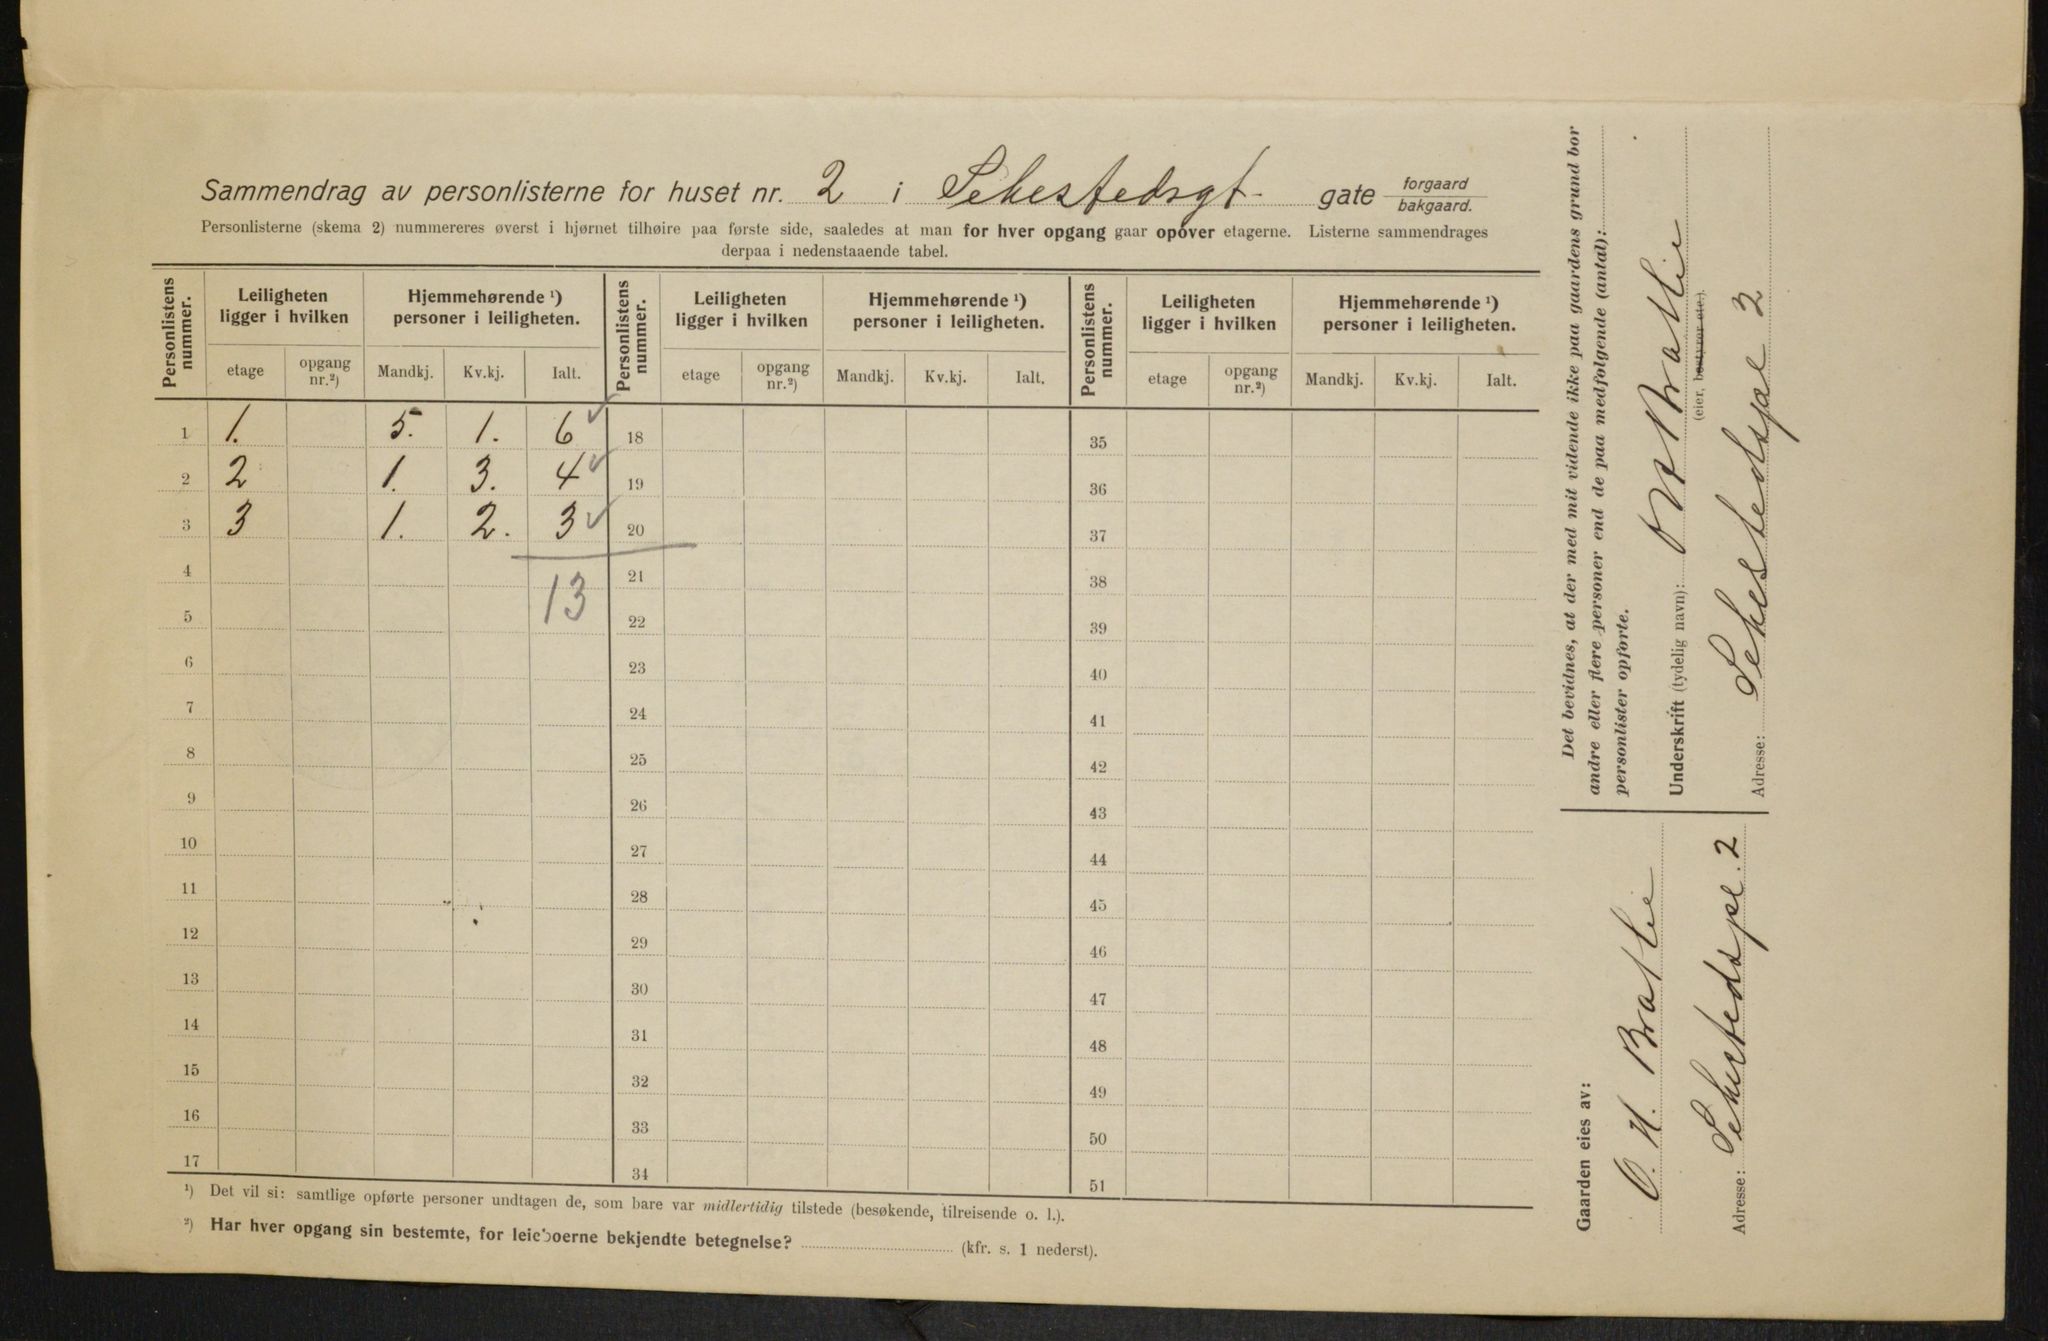 Sammendrag av personlisterne for huset nr. 2 i Sehestedsgt. gate forgaard
bakgaard.
Personlisterne (skema 2) nummereres øverst i hjørnet tilhøire paa første side, saaledes at man for hver opgang gaar opover etagerne. Listerne sammendrages
derpaa i nedenstaaende tabel.
Personlistens nummer. Leiligheten ligger i hvilken Hjemmehørende ¹) personer i leiligheten. Personlistens nummer. Leiligheten ligger i hvilken Hjemmehørende ¹) personer i leiligheten. Personlistens nummer. Leiligheten ligger i hvilken Hjemmehørende ¹) personer i leiligheten.
etage opgang nr.²) Mandkj. Kv.kj. Ialt. etage opgang nr.²) Mandkj. Kv.kj. Ialt. etage opgang nr.²) Mandkj. Kv.kj. Ialt.
1 1. 5. 1. 6 18 35
2 2 1. 3. 4 19 36
3 3 1. 2. 3 20 37
4 13 21 38
5 22 39
6 23 40
7 24 41
8 25 42
9 26 43
10 27 44
11 28 45
12 29 46
13 30 47
14 31 48
15 32 49
16 33 50
17 34 51
¹) Det vil si: samtlige opførte personer undtagen de, som bare var midlertidig tilstede (besøkende, tilreisende o. l.).
²) Har hver opgang sin bestemte, for leieboerne bekjendte betegnelse? (kfr. s. 1 nederst).
Det bevidnes, at der med mit vidende ikke paa gaardens grund bor
andre eller flere personer end de paa medfølgende (antal):
personlister opførte.
Underskrift (tydelig navn): O H Brathie
(eier, bestyrer etc.).
Adresse: Sehestedspl 2
Gaarden eies av:
O. H. Brathie
Adresse: Sehestedspl. 2